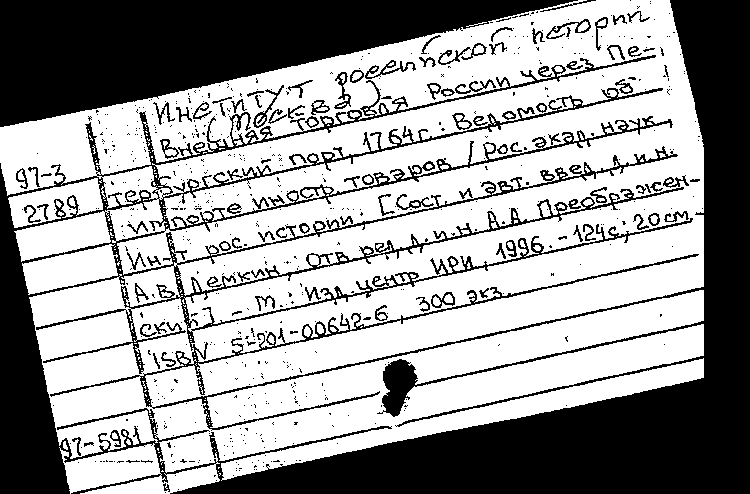 Институт российской истории
(Москва).
Внешняя торговля России через Пе-
97-3
тербургский порт, 1764г.: Ведомость об
2789
импорте иностр. товаров / Рос. акад. наук,
Ин-т рос. истории; [Сост. и авт. введ. д.и.н.
А.В. Демкин; Отв. ред. д.и.н. А.А. Преображен-
ский]. - М.: Изд. центр ИРИ, 1996. - 124с; 20см -
ISBN 5-201-00642-6, 300 экз.
97-5981